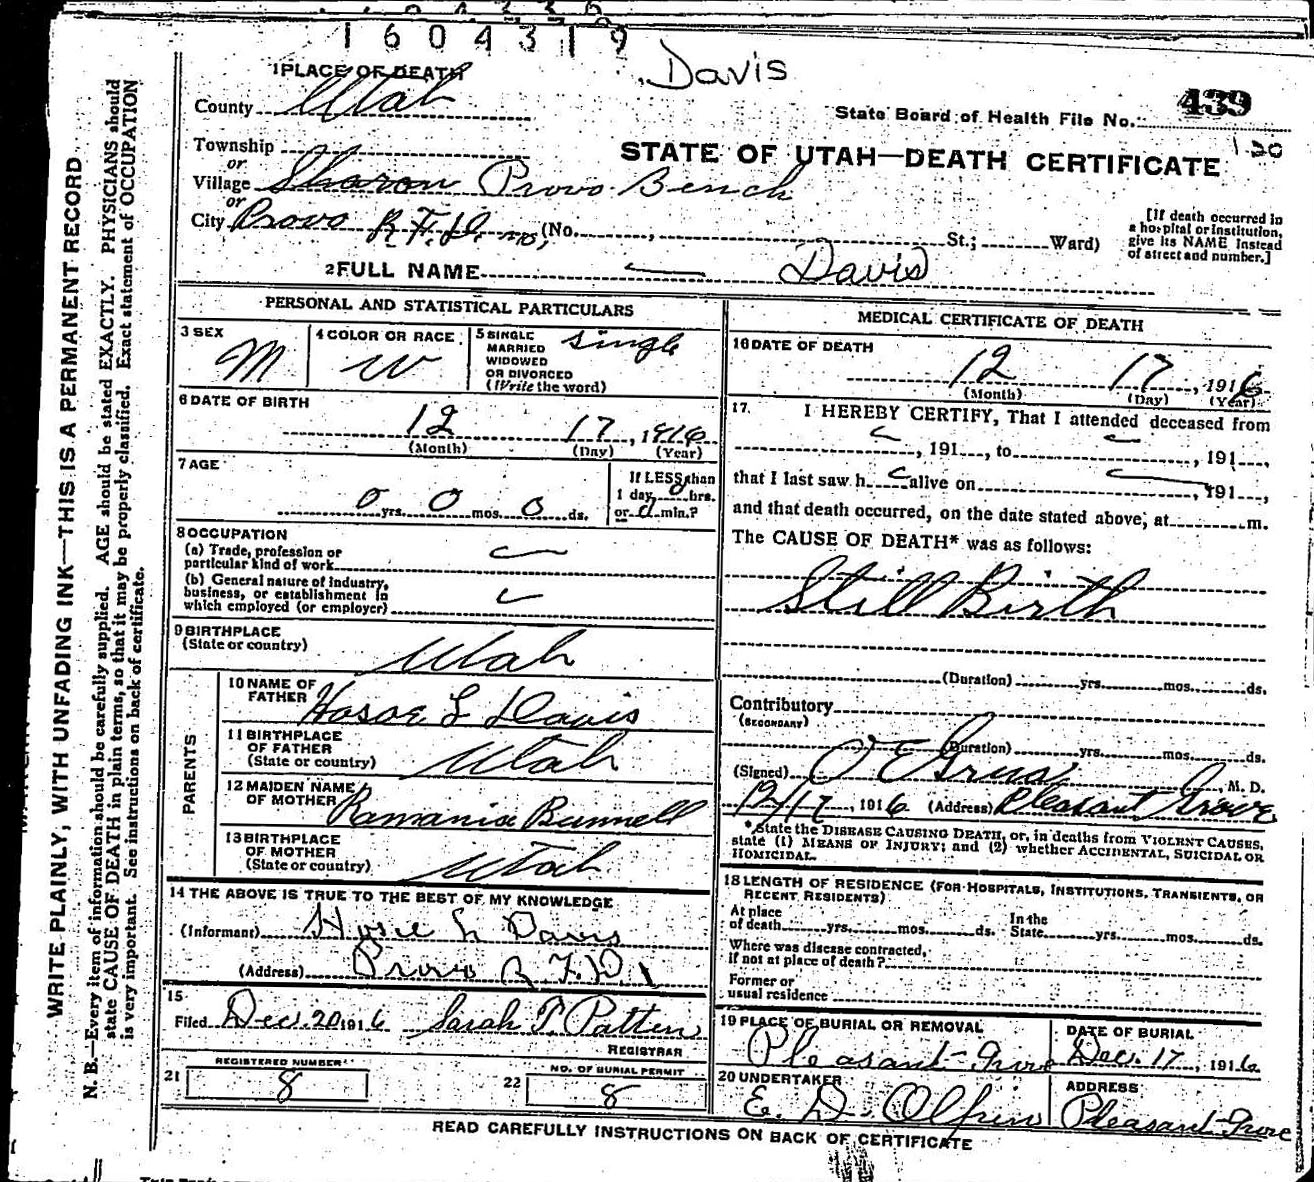 1604319
Davis
1 PLACE OF DEATH
County Utah
State Board of Health File No. 439
Township
or
STATE OF UTAH—DEATH CERTIFICATE
Village Sharon Provo Bench
or
City Provo R.F.D. no, (No. , St.; Ward)
[If death occurred in
a hospital or institution,
give its NAME instead
of street and number.]
2 FULL NAME Davis
PERSONAL AND STATISTICAL PARTICULARS
3 SEX M
4 COLOR OR RACE W
5 SINGLE
MARRIED
WIDOWED
OR DIVORCED
(Write the word) Single
6 DATE OF BIRTH
12 17, 1916
(Month) (Day) (Year)
7 AGE
0 yrs. 0 mos. 0 ds.
If LESS than
1 day 0 hrs.
or 0 min.?
8 OCCUPATION
(a) Trade, profession or
particular kind of work
(b) General nature of industry,
business, or establishment in
which employed (or employer)
9 BIRTHPLACE
(State or country) Utah
PARENTS
10 NAME OF
FATHER L Davis
11 BIRTHPLACE
OF FATHER
(State or country) Utah
12 MAIDEN NAME
OF MOTHER Ramania Bunnell
13 BIRTHPLACE
OF MOTHER
(State or country) Utah
14 THE ABOVE IS TRUE TO THE BEST OF MY KNOWLEDGE
(Informant) L Davis
(Address) Provo R.F.D. 1
15
Filed Dec. 20 1916 Sarah T. Patten
REGISTRAR
REGISTERED NUMBER
21 8
NO. OF BURIAL PERMIT
22 8
MEDICAL CERTIFICATE OF DEATH
16 DATE OF DEATH
12 17, 1916
(Month) (Day) (Year)
17. I HEREBY CERTIFY, That I attended deceased from
, 191 , to , 191 ,
that I last saw h alive on , 191 ,
and that death occurred, on the date stated above, at m.
The CAUSE OF DEATH* was as follows:
Still Birth
(Duration) yrs. mos. ds.
Contributory
(SECONDARY)
(Duration) yrs. mos. ds.
(Signed) O E Grua, M. D.
12/17, 1916 (Address) Pleasant Grove
*State the DISEASE CAUSING DEATH, or, in deaths from VIOLENT CAUSES,
state (1) MEANS OF INJURY; and (2) whether ACCIDENTAL, SUICIDAL OR
HOMICIDAL.
18 LENGTH OF RESIDENCE (FOR HOSPITALS, INSTITUTIONS, TRANSIENTS, OR
RECENT RESIDENTS)
At place
of death yrs. mos. ds.
In the
State yrs. mos. ds.
Where was disease contracted,
if not at place of death?
Former or
usual residence
19 PLACE OF BURIAL OR REMOVAL
Pleasant Grove
DATE OF BURIAL
Dec. 17, 1916
20 UNDERTAKER
E. D. Olpin
ADDRESS
Pleasant Grove
READ CAREFULLY INSTRUCTIONS ON BACK OF CERTIFICATE
WRITE PLAINLY, WITH UNFADING INK—THIS IS A PERMANENT RECORD
N. B.—Every item of information should be carefully supplied. AGE should be stated EXACTLY. PHYSICIANS should
state CAUSE OF DEATH in plain terms, so that it may be properly classified. Exact statement of OCCUPATION
is very important. See instructions on back of certificate.